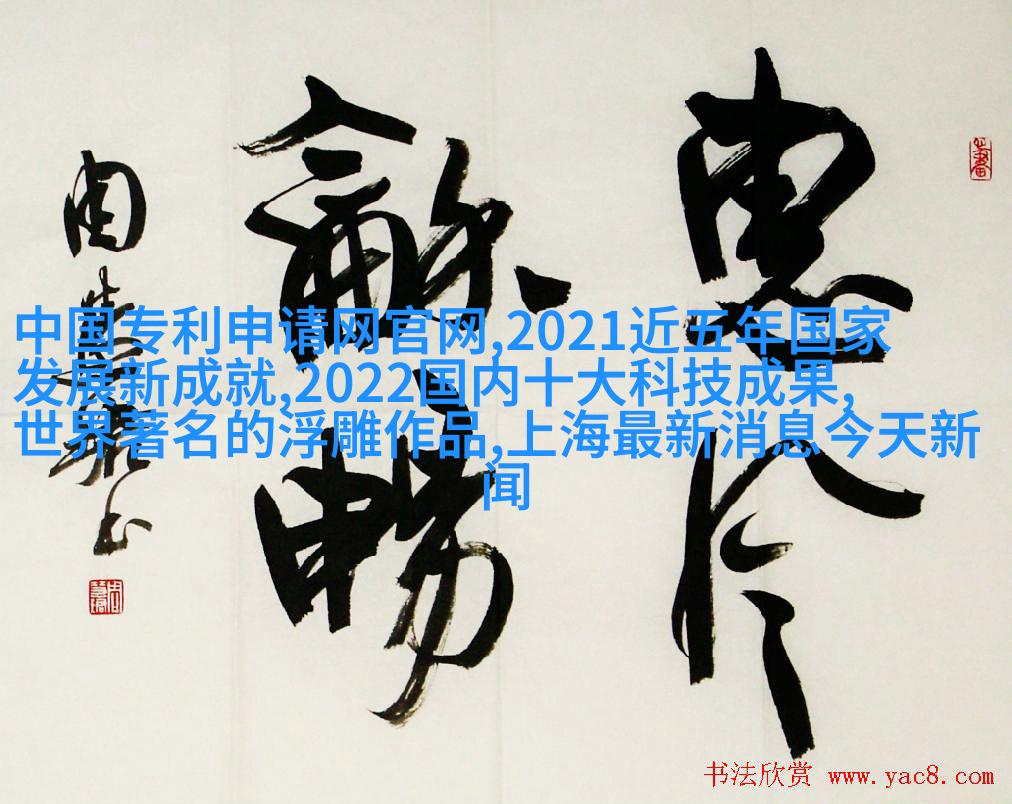 中国专利申请网官网,2021近五年国家
发展新成就,2022国内十大科技成果,
世界著名的浮雕作品,上海最新消息今天新
闻
惠风
龢畅
周慧珺书
书法欣赏 www.yac8.com